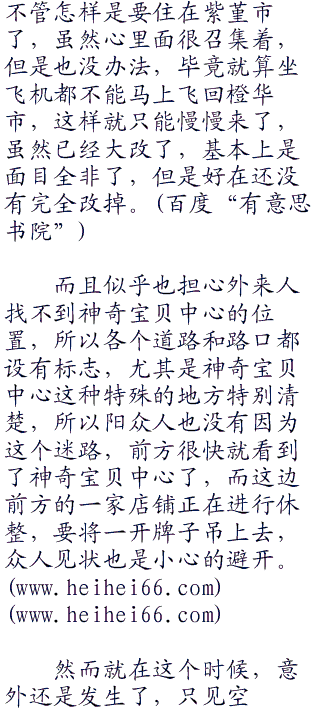 不管怎样是要住在紫堇市
了，虽然心里面很召集着，
但是也没办法，毕竟就算坐
飞机都不能马上飞回橙华
市，这样就只能慢慢来了，
虽然已经大改了，基本上是
面目全非了，但是好在还没
有完全改掉。(百度“有意思
书院”)
而且似乎也担心外来人
找不到神奇宝贝中心的位
置，所以各个道路和路口都
设有标志，尤其是神奇宝贝
中心这种特殊的地方特别清
楚，所以阳众人也没有因为
这个迷路，前方很快就看到
了神奇宝贝中心了，而这边
前方的一家店铺正在进行休
整，要将一开牌子吊上去，
众人见状也是小心的避开。
(www.heihei66.com)
(www.heihei66.com)
然而就在这个时候，意
外还是发生了，只见空